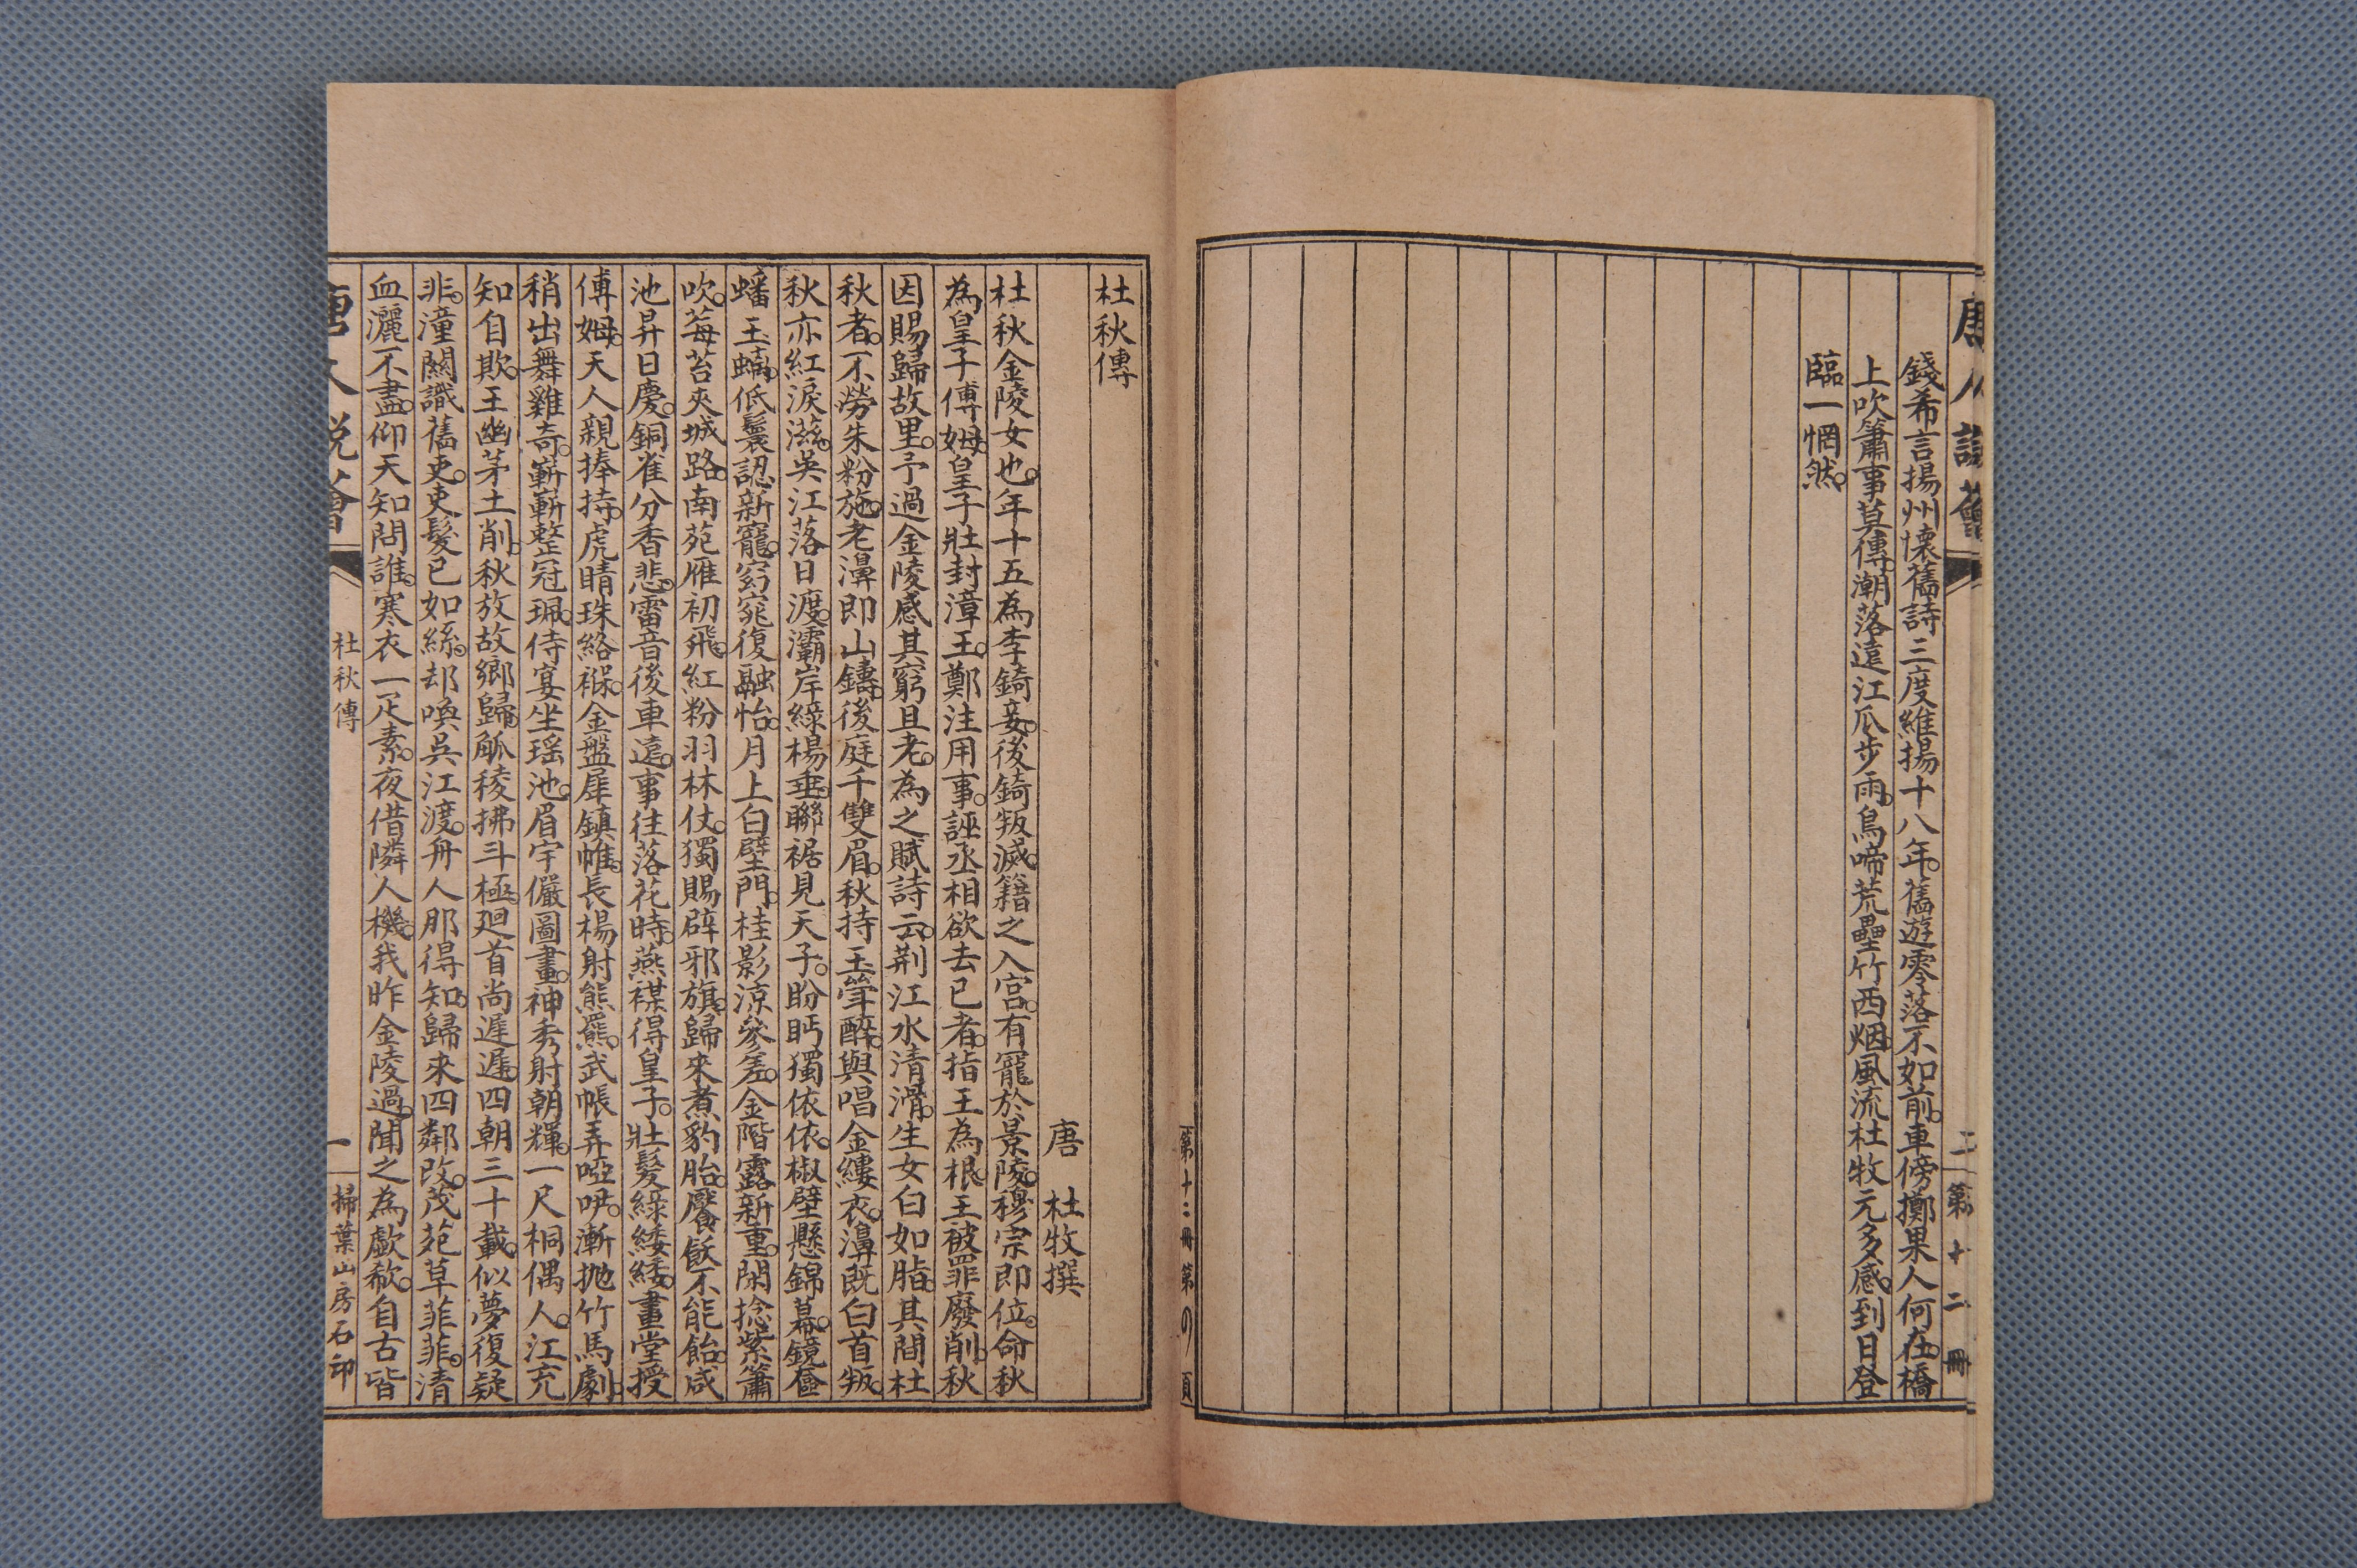 唐人說薈
二
第十二冊
錢希言揚州懷舊詩三度維揚十八年。舊遊零落不如前。車傍擲果人何在。橋
上吹簫事莫傳。潮落遠江瓜步雨。鳥啼荒壘竹西烟。風流杜牧元多感。到日登
臨一惘然。
第十二冊第 頁
杜秋傳
唐 杜牧撰
杜秋金陵女也。年十五為李錡妾。後錡叛滅。籍之入宮。有寵於景陵。穆宗即位。命秋
為皇子傅姆。皇子壯封漳王。鄭注用事。誣丞相欲去已者。指王為根。王被罪廢削。秋
因賜歸故里。予過金陵感其窮且老。為之賦詩云。荆江水清滑。生女白如脂。其間杜
秋者。不勞朱粉施。老濞即山鑄。後庭千雙眉。秋持玉斝醉。與唱金縷衣。濞既白首叛。
秋亦紅淚滋。吳江落日渡。灞岸綠楊垂。聯裾見天子。盼眄獨依依。椒壁懸錦幕。鏡奩
蟠玉螭。低鬟認新寵。窈窕復融怡。月上白壁門。桂影涼參差。金階露新重。閑捻紫簫
吹。莓苔夾城路。南苑雁初飛。紅粉羽林仗。獨賜辟邪旗。歸來煮豹胎。饜飫不能飴。咸
池昇日慶。銅雀分香悲。雷音後車遠。事往落花時。燕禖得皇子。壯髮綠緌緌。畫堂授
傅姆。天人親捧持。虎睛珠絡褓。金盤犀鎮帷。長楊射熊羆。武帳弄啞咿。漸抛竹馬劇。
稍出舞雞奇。嶄嶄整冠珮。侍宴坐瑶池。眉宇儼圖畫。神秀射朝輝。一尺桐偶人。江充
知自欺。王幽茅土削。秋放故鄉歸。觚稜拂斗極。廻首尚遲遲。四朝三十載。似夢復疑
非。潼關識舊吏。吏髮已如絲。却喚吳江渡。舟人那得知。歸來四鄰改。茂苑草菲菲。清
血灑不盡。仰天知問誰。寒衣一疋素。夜借隣人機。我昨金陵過。聞之為歔欷。自古皆
唐人說薈
杜秋傳
一
掃葉山房石印